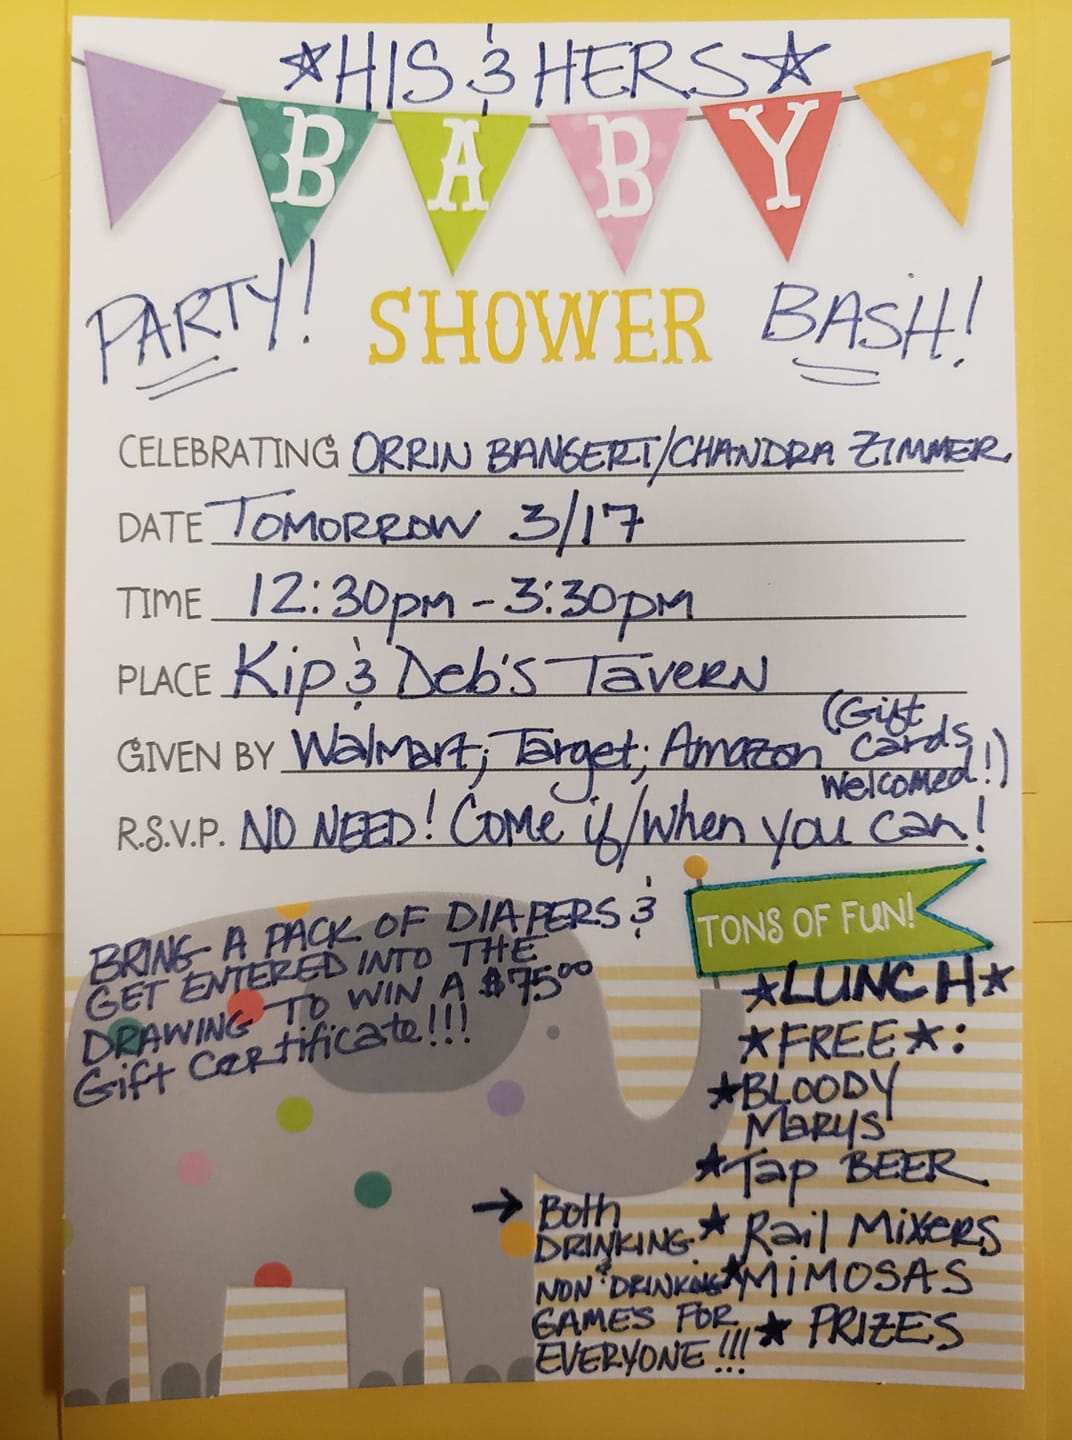 ☆HIS & HERS☆
BABY
PARTY! SHOWER BASH!
CELEBRATING ORRIN BANGERT/CHANDRA ZIMMER
DATE TOMORROW 3/17
TIME 12:30pm - 3:30pm
PLACE Kip & Deb's Tavern
GIVEN BY Walmart; Target; Amazon (Gift
cards
welcomed!)
R.S.V.P. NO NEED! Come if/when you can!
BRING A PACK OF DIAPERS &
GET ENTERED INTO THE
DRAWING TO WIN A $75.00
Gift Certificate!!!
TONS OF FUN!
★LUNCH★
★FREE★:
★BLOODY
MARYS
★Tap BEER
★Rail Mixers
★MIMOSAS
★PRIZES
→ Both
DRINKING
&
NON DRINKING
GAMES FOR
EVERYONE!!!